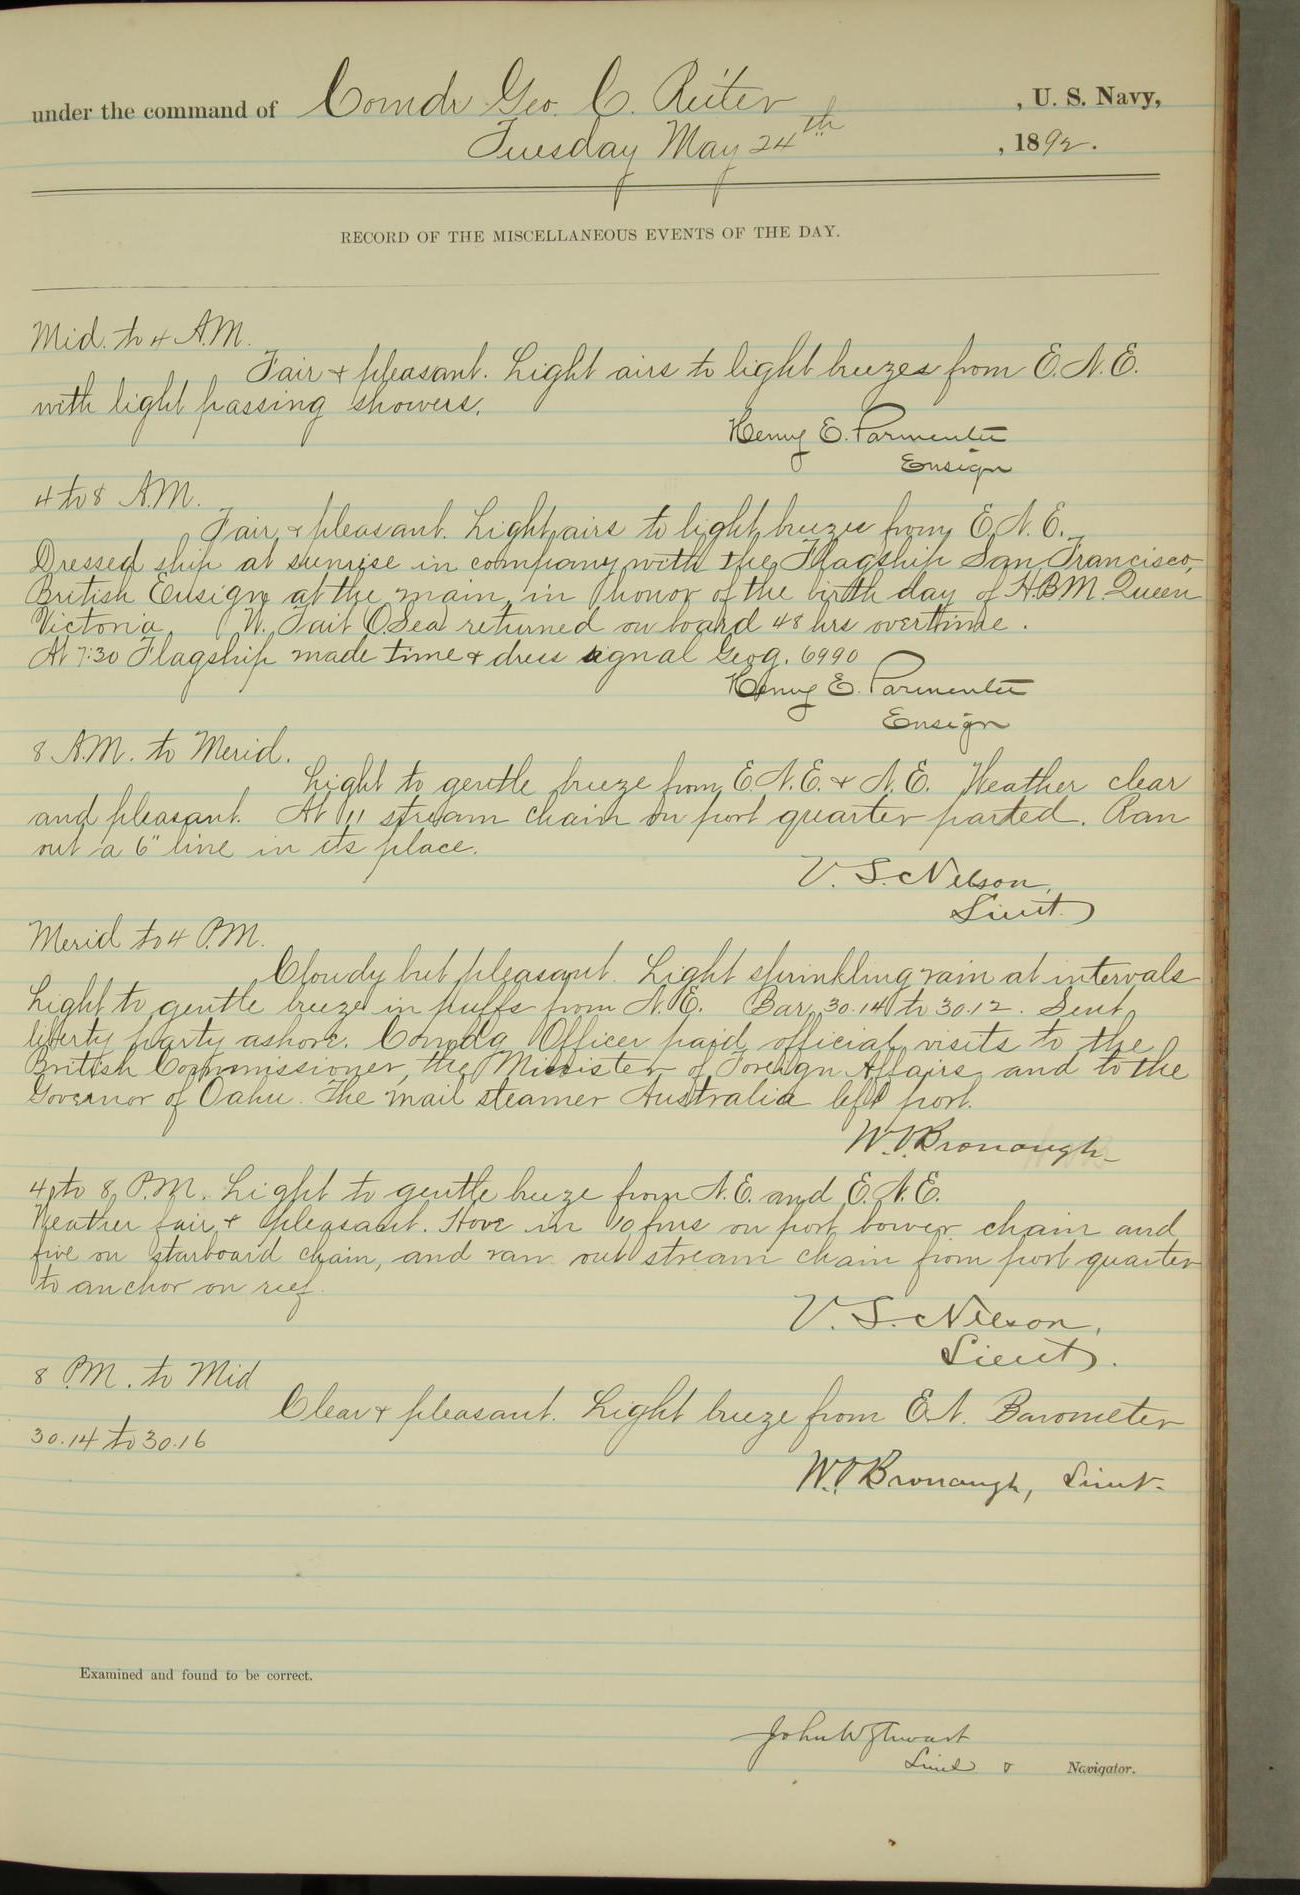 under the command of Comdr Geo. C. Reiter, U. S. Navy,
Tuesday May 24th, 1892.
RECORD OF THE MISCELLANEOUS EVENTS OF THE DAY.
Mid. to 4 A.M.
Fair & pleasant. Light airs to light breezes from E.N.E.
with light passing showers.
Henry E. Parmenter
Ensign
4 to 8 A.M.
Fair & pleasant. Light airs to light breezes from E.N.E.
Dressed ship at sunrise in company with the Flagship San Francisco,
British Ensign at the main, in honor of the birth day of H.B.M. Queen
Victoria. W. Tait O.Sea returned on board 48 hrs overtime.
At 7:30 Flagship made time & dress signal Geog. 6990
Henry E. Parmenter
Ensign
8 A.M. to Merid.
Light to gentle breeze from E.N.E. & N.E. Weather clear
and pleasant. At 11 stream chain on port quarter parted. Ran
out a 6" line in its place.
V. S. Nelson,
Lieut.
Merid to 4 P.M.
Cloudy but pleasant. Light sprinkling rain at intervals
Light to gentle breeze in puffs from N.E. Bar. 30.14 to 30.12. Sent
liberty party ashore. Comdg Officer paid official visits to the
British Commissioner, the Minister of Foreign Affairs and to the
Governor of Oahu. The mail steamer Australia left port.
W. V. Bronaugh
4 to 8 P.M. Light to gentle breeze from N.E. and E.N.E.
Weather fair & pleasant. Hove in 10 fms on port bower chain and
five on starboard chain, and ran out stream chain from port quarter
to anchor on reef.
V. S. Nelson,
Lieut.
8 P.M. to Mid
Clear & pleasant. Light breeze from E.N. Barometer
30.14 to 30.16
W. V. Bronaugh, Lieut.
Examined and found to be correct.
John W Stewart
Lieut & Navigator.